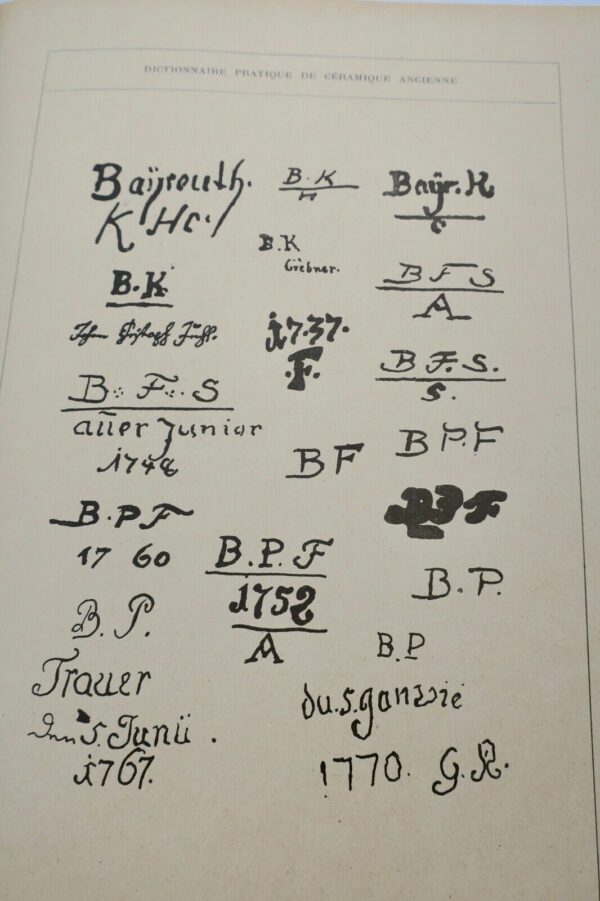 DICTIONNAIRE PRATIQUE DE CÉRAMIQUE ANCIENNE
Baÿreuth.
K Hc.
B.K
B.K
H
B.K
Baÿr. K
c
B F S
A
1.7.37.
.F.
B F. S.
S.
B F S
auer Junior
1748
B F
B P. F
B.P F
17 60
B. P. F
1752
A
B. P.
B. P.
B.P
Trauer
5. Junü .
1767.
du.s.
1770. G.R.